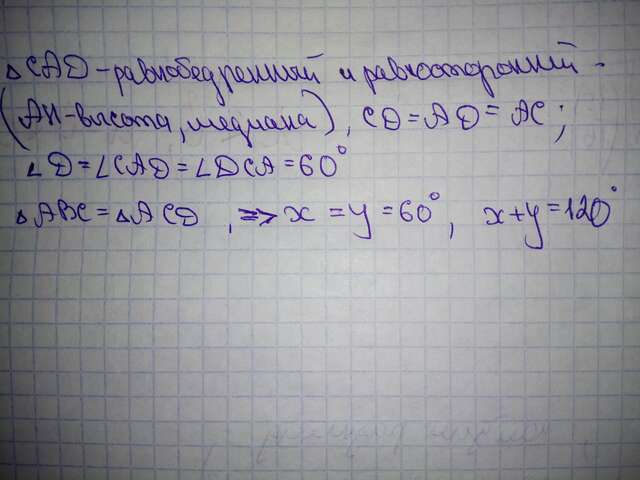 △CAD-равнобедренный и равносторонний -
(AH-высота, медиана), CD=AD=AC;
∠D=∠CAD=∠DCA=60°
△ABC=△ACD, => x=y=60°, x+y=120°